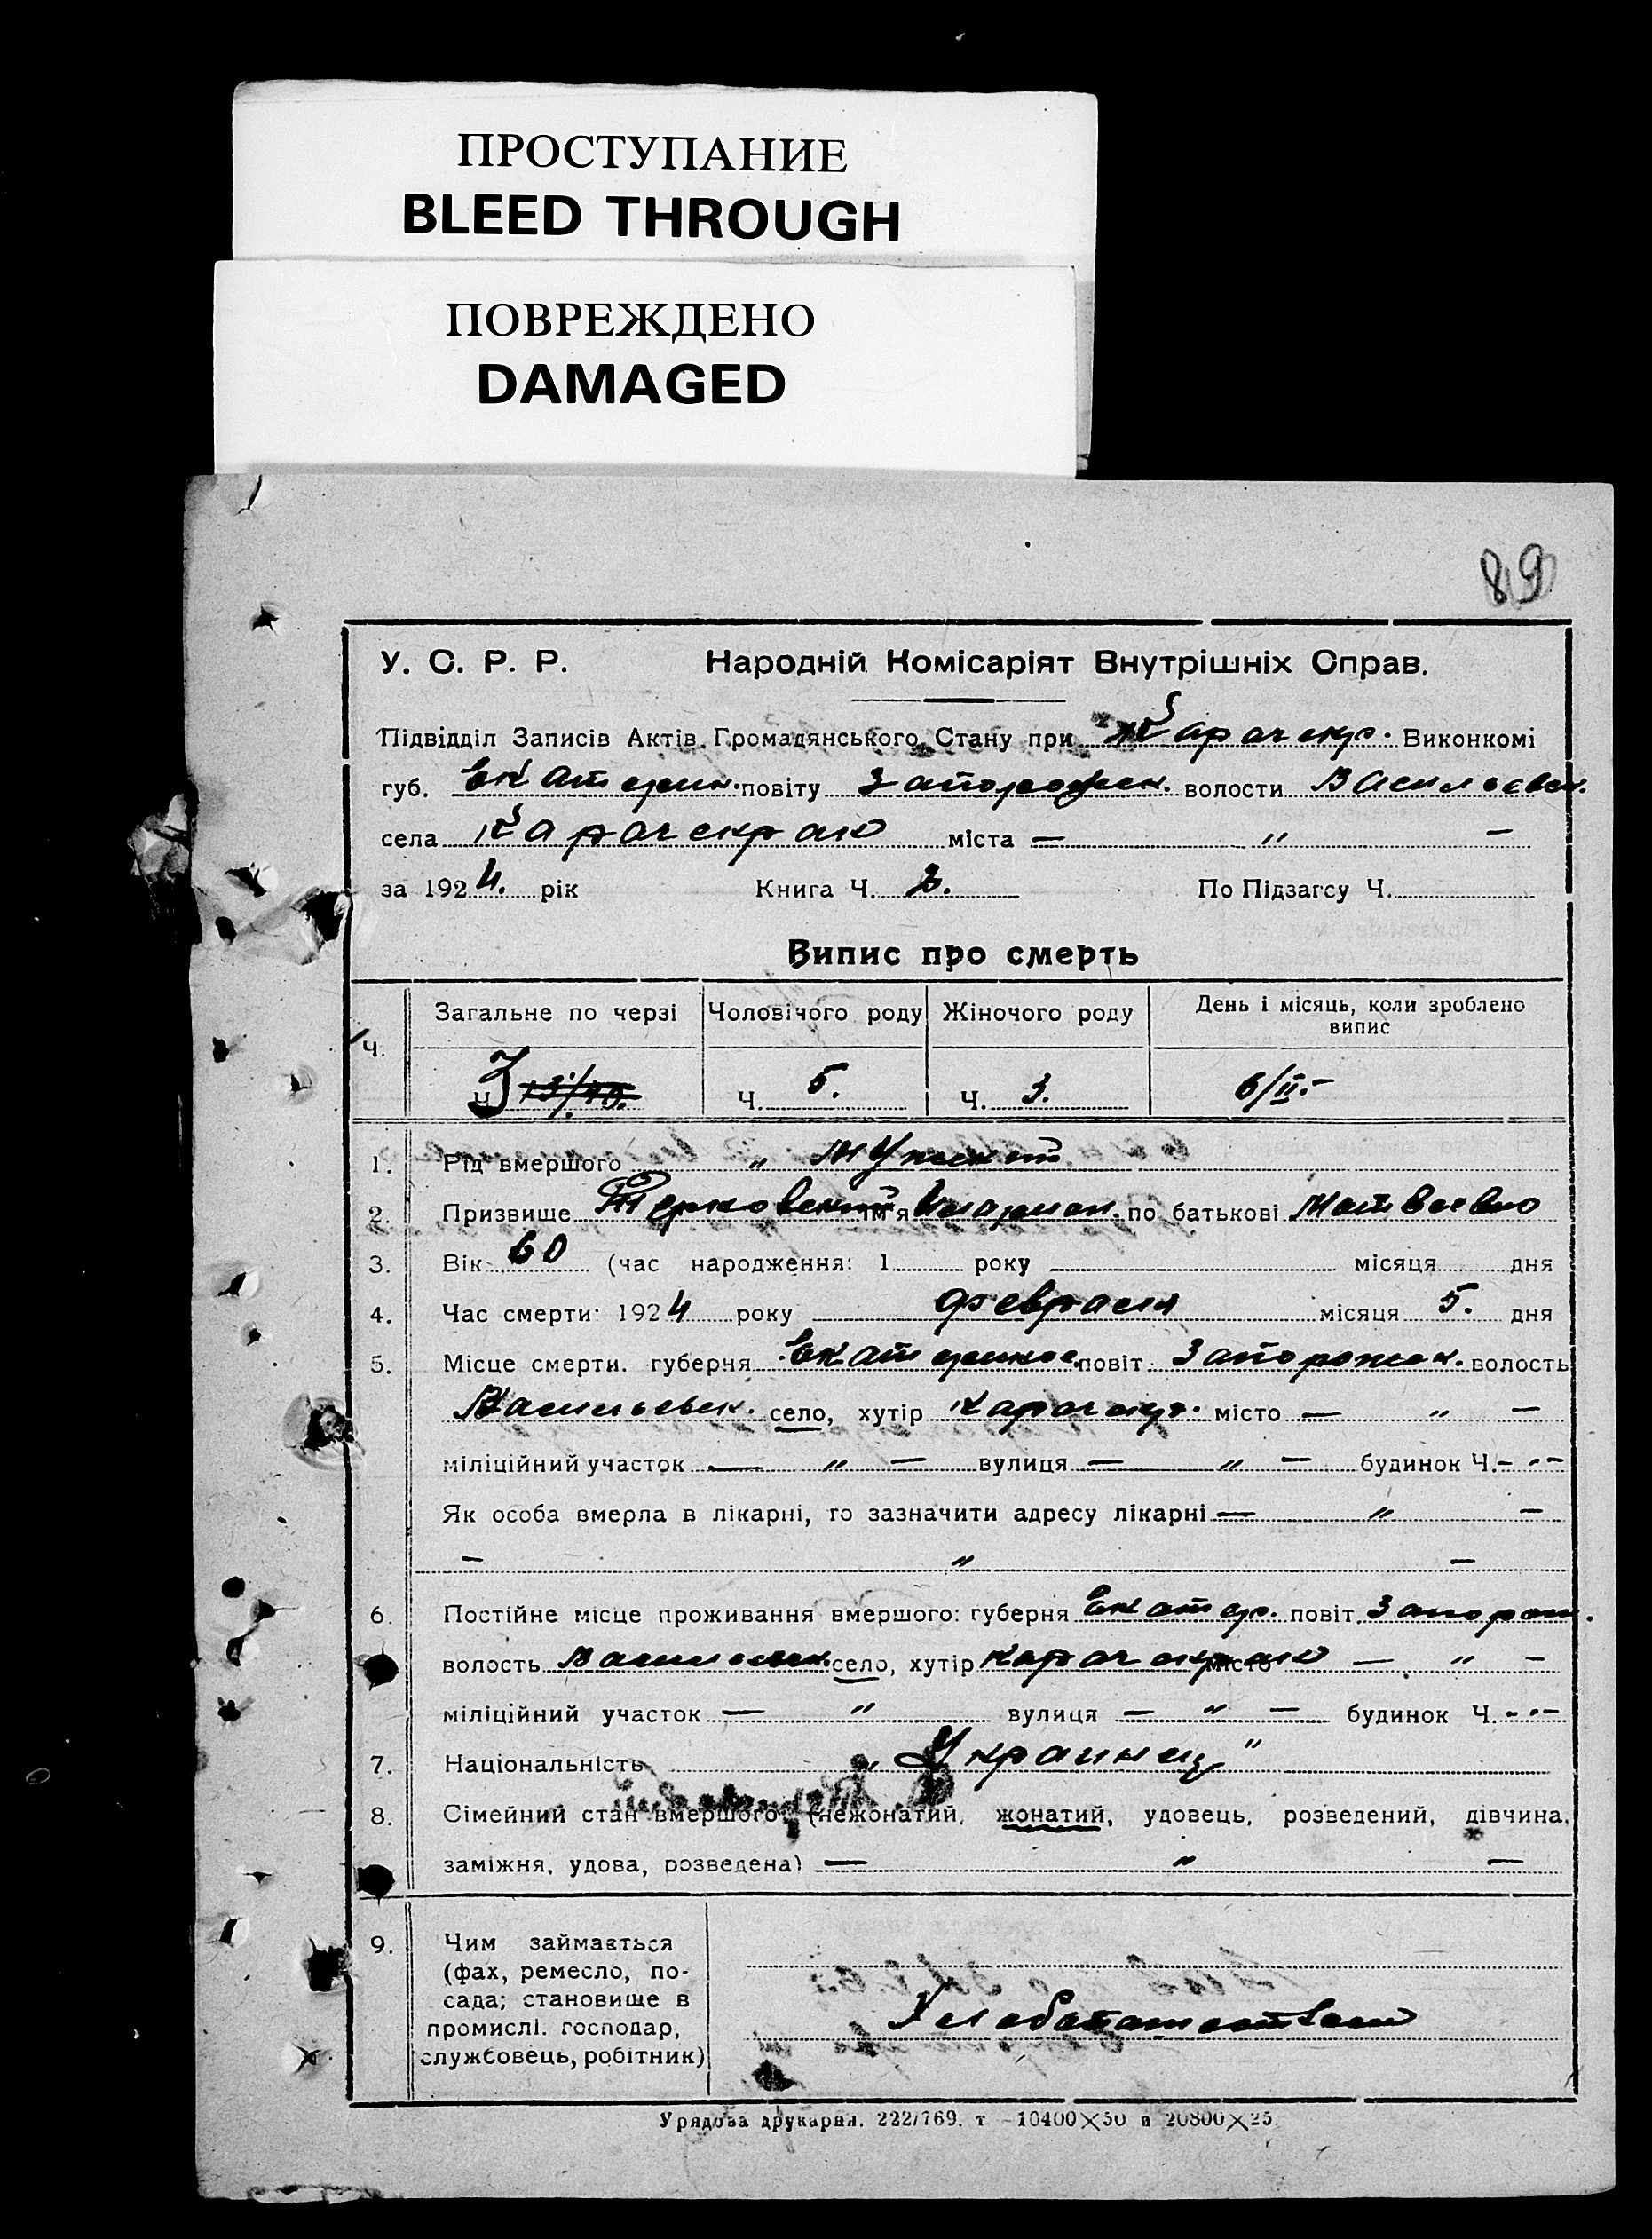 ПРОСТУПАНИЕ
BLEED THROUGH
ПОВРЕЖДЕНО
DAMAGED
89
У. С. Р. Р. Народній Комісаріят Внутрішніх Справ.
Підвідділ Записів Актів Громадянського Стану при Карачекр. Виконкомі
губ. Екатерин. повіту Запорожск. волости Васильевск.
села Карачекрак міста — " —
за 1924. рік Книга Ч. 2. По Підзагсу Ч.
Випис про смерть
Ч. Загальне по черзі Чоловічого роду Жіночого роду День і місяць, коли зроблено
випис
Ч. 3 Ч. 5. Ч. 3. 6/II.-
1. Рід вмершого „ мужской
2. Призвище імя по батькові Матвеевич
3. Вік 60 (час народження: 1 року місяця дня
4. Час смерти: 1924 року февраля місяця 5. дня
5. Місце смерти. губерня Екатеринос. повіт Запорожск. волость
Васильевск. село, хутір Карачекр. місто — " —
міліційний участок — " — вулиця — " — будинок Ч. - " -
Як особа вмерла в лікарні, то зазначити адресу лікарні — " —
— " —
6. Постійне місце проживання вмершого: губерня Екатер. повіт Запорож.
волость Васильевск. село, хутір Карачекрак місто — " —
міліційний участок — " — вулиця — " — будинок Ч. - " -
7. Національність „Украинец"
8. Сімейний стан вмершого: (нежонатий, жонатий, удовець, розведений, дівчина,
заміжня, удова, розведена) — " —
9. Чим займається
(фах, ремесло, по-
сада; становище в
промислі. господар,
службовець, робітник)
Урядова друкарня. 222/769. т —10400×50 и 20800×25.